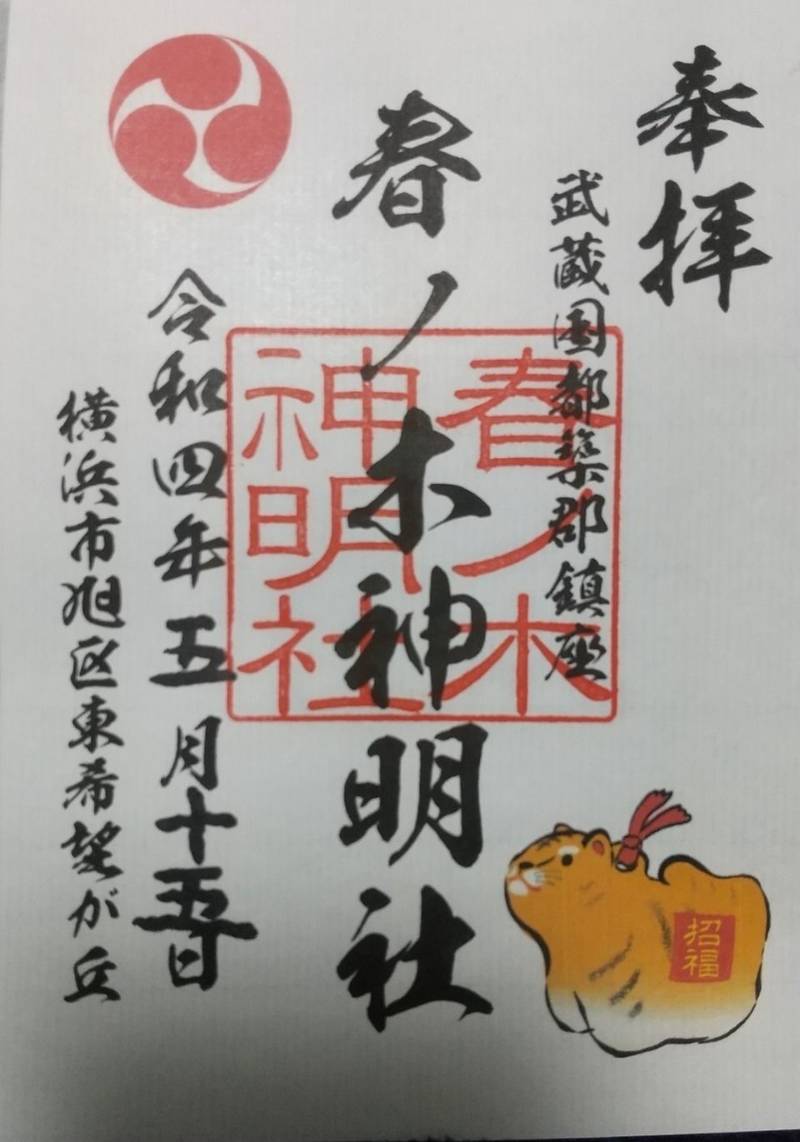 奉拝
武蔵国都築郡鎮座
春ノ木神明社
春ノ木
神明社
令和四年五月十五日
横浜市旭区東希望が丘
招福